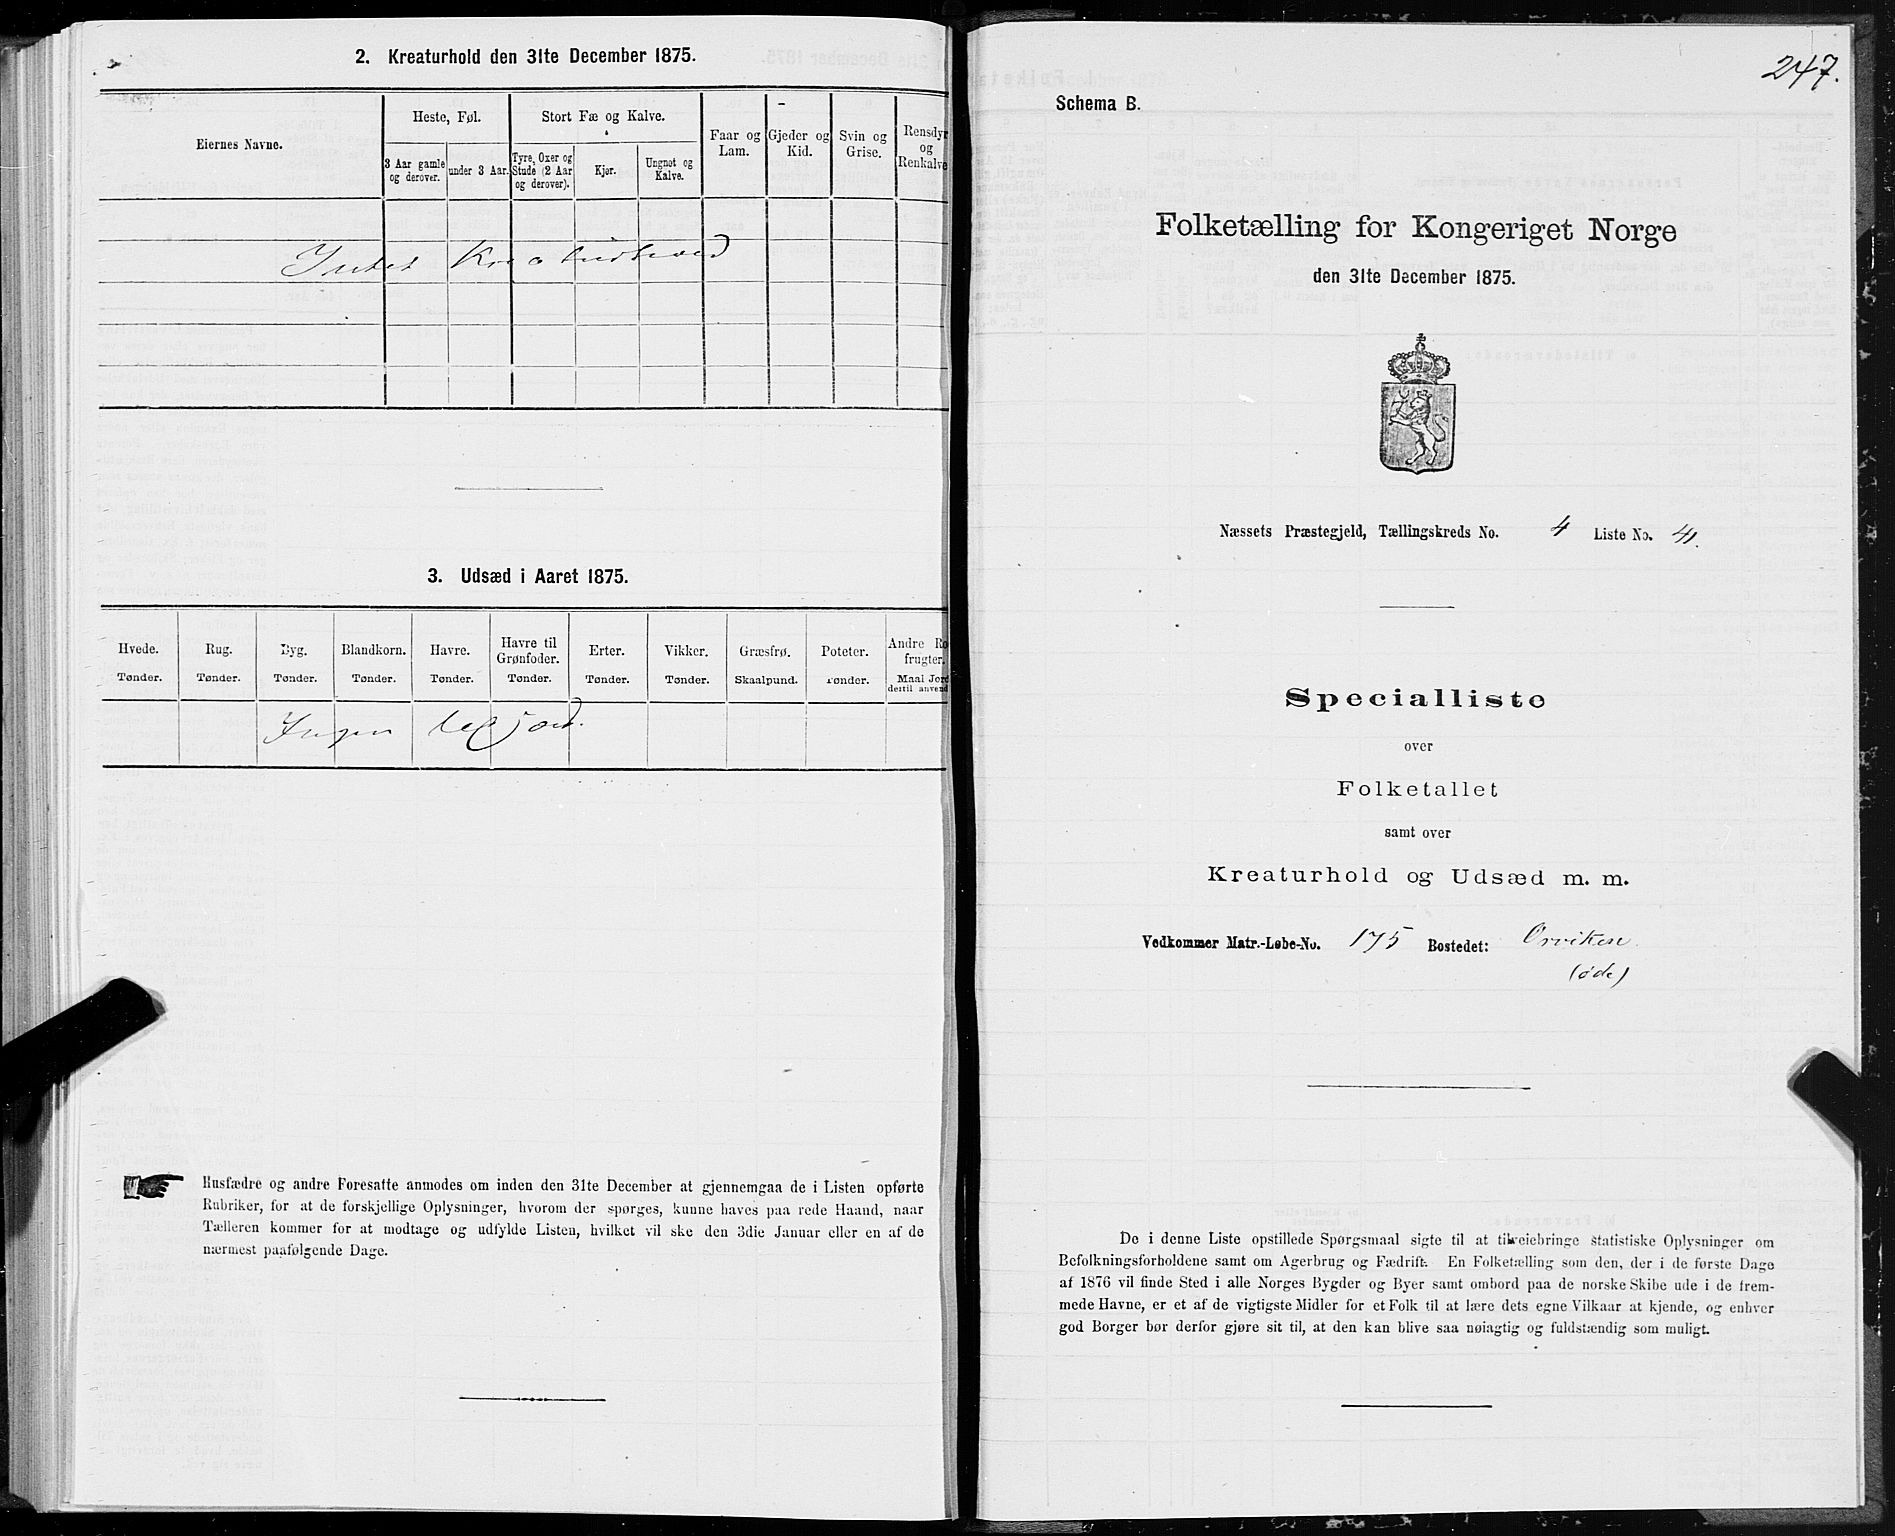 2. Kreaturhold den 31te December 1875.
Eiernes Navne.
Heste, Føl.
Stort Fæ og Kalve.
Faar og Lam.
Gjeder og Kid.
Svin og Grise.
Rensdyr og Renkalve
3 Aar gamle og derover.
under 3 Aar.
Tyre, Oxer og Stude (2 Aar og derover).
Kjør.
Ungnøt og Kalve.
Intet Kreaturhold
3. Udsæd i Aaret 1875.
Hvede. Tønder.
Rug. Tønder.
Byg. Tønder.
Blandkorn. Tønder.
Havre. Tønder.
Havre til Grønfoder. Tønder.
Erter. Tønder.
Vikker. Tønder.
Græsfrø. Skaalpund.
Poteter. Tønder.
Andre Ro frugter. Maal Jord dertil anvend
Ingen
Husfædre og andre Foresatte anmodes om inden den 31te December at gjennemgaa de i Listen opførte
Rubriker, for at de forskjellige Oplysninger, hvorom der spørges, kunne haves paa rede Haand, naar
Tælleren kommer for at modtage og udfylde Listen, hvilket vil ske den 3die Januar eller en af de
nærmest paafølgende Dage.
247.
Schema B.
Folketælling for Kongeriget Norge
den 31te December 1875.
Næssets Præstegjeld, Tællingskreds No. 4 Liste No. 41.
Specialliste
over
Folketallet
samt over
Kreaturhold og Udsæd m. m.
Vedkommer Matr.-Løbe-No. 175 Bostedet: Orviken
(øde)
De i denne Liste opstillede Spørgsmaal sigte til at tilveiebringe statistiske Oplysninger om
Befolkningsforholdene samt om Agerbrug og Fædrift. En Folketælling som den, der i de første Dage
af 1876 vil finde Sted i alle Norges Bygder og Byer samt ombord paa de norske Skibe ude i de frem-
mede Havne, er et af de vigtigste Midler for et Folk til at lære dets egne Vilkaar at kjende, og enhver
god Borger bør derfor gjøre sit til, at den kan blive saa nøiagtig og fuldstændig som muligt.